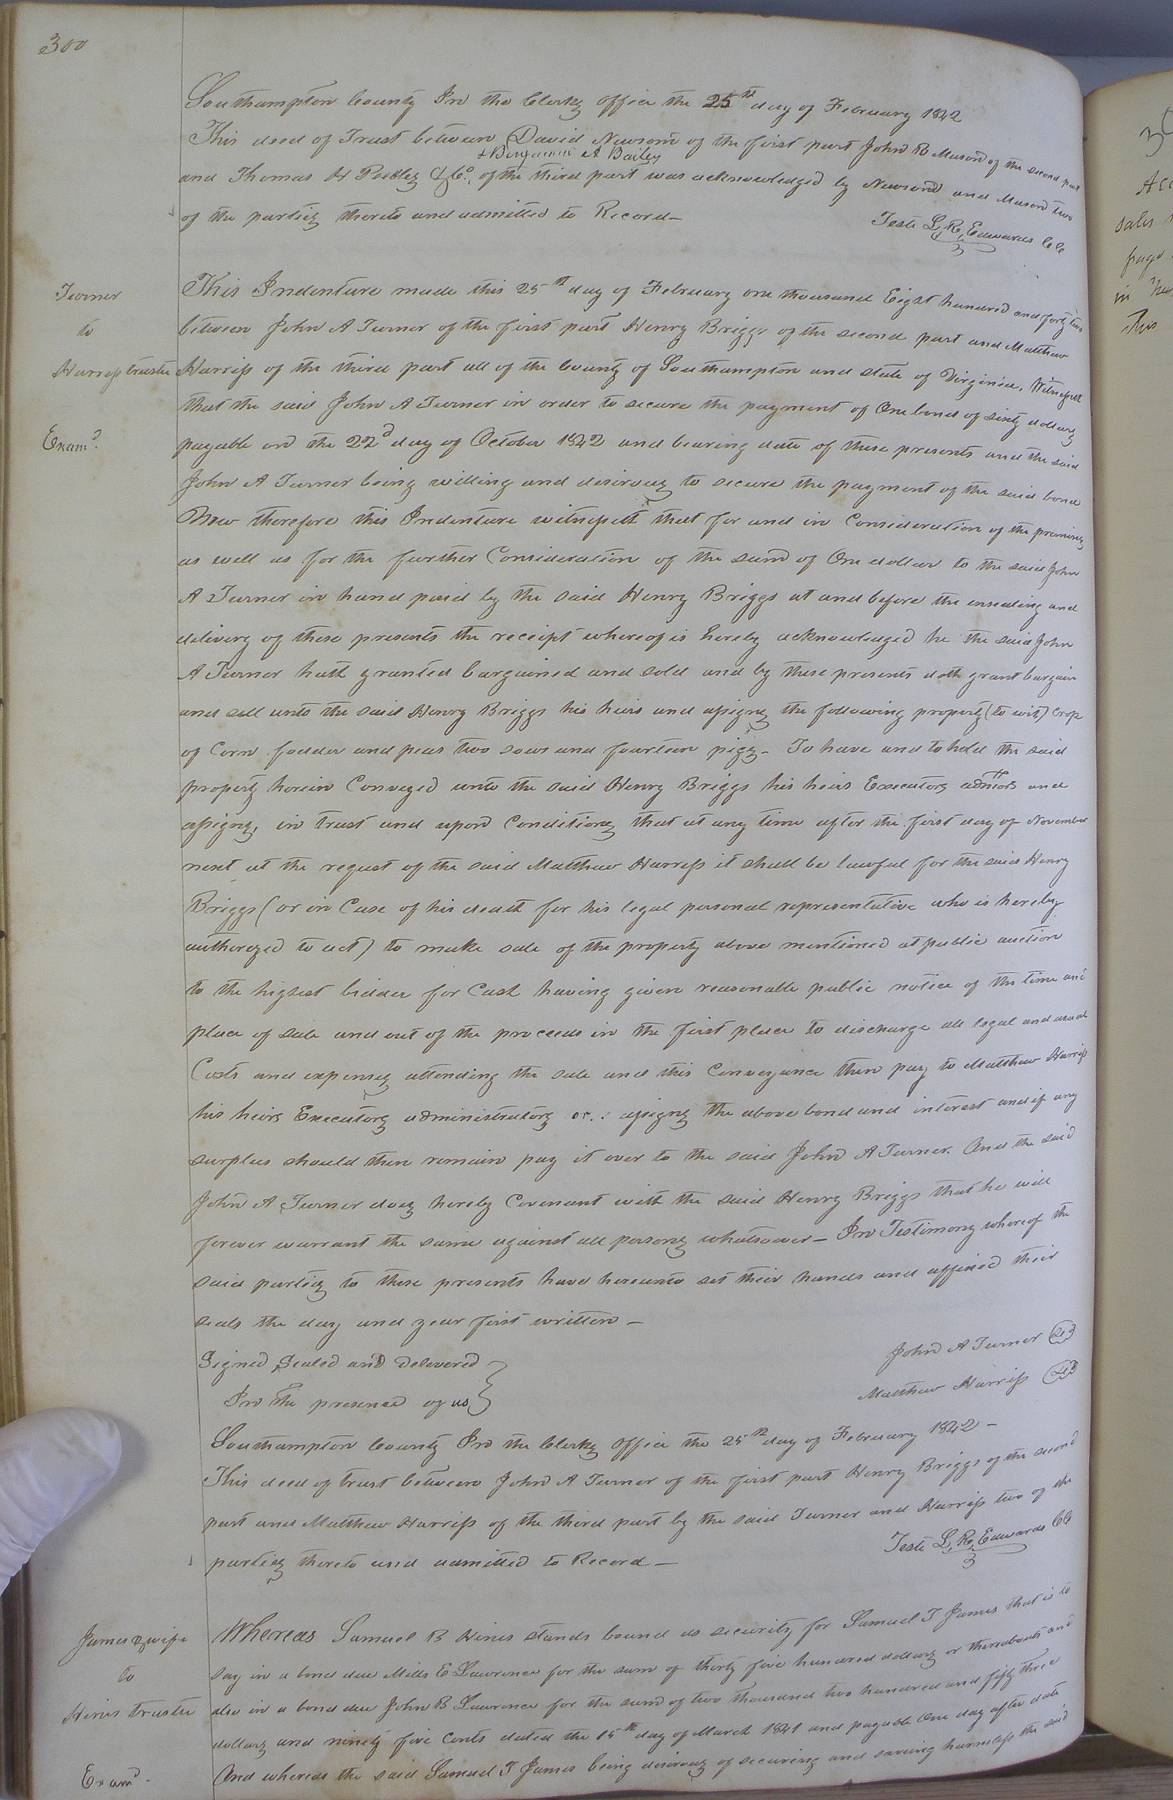 300
Southampton County In the Clerks office the 25th day of February 1842
This deed of Trust between David Newsom of the first part John R Mason of the second part
& Benjamin A Bailey
and Thomas H Peebles & Co. of the third part was acknowledged by Newsom and Mason two
of the parties thereto and admitted to Record—
Teste L. R. Edwards CC
Turner
to
Harriss trustee
Examd
This Indenture made this 25th day of February one thousand Eight hundred and forty two
between John A Turner of the first part Henry Briggs of the second part and Matthew
Harriss of the third part all of the County of Southampton and state of Virginia, Witnesseth
that the said John A Turner in order to secure the payment of One bond of sixty dollars
payable on the 22d day of October 1842 and bearing date of these presents and the said
John A Turner being willing and desirous to secure the payment of the said bond
Now therefore this Indenture witnesseth that for and in Consideration of the premises
as well as for the further Consideration of the sum of One dollar to the said John
A Turner in hand paid by the said Henry Briggs at and before the ensealing and
delivery of these presents the receipt whereof is hereby acknowledged he the said John
A Turner hath granted bargained and sold and by these presents doth grant bargain
and sell unto the said Henry Briggs his heirs and assigns the following property (to wit) Crop
of Corn fodder and peas two sows and fourteen pigs— To have and to hold the said
property herein Conveyed unto the said Henry Briggs his heirs Executors admors and
assigns, in trust and upon Conditions that at any time after the first day of November
next at the request of the said Matthew Harriss it shall be lawful for the said Henry
Briggs (or in Case of his death for his legal personal representative who is hereby
authorized to act) to make sale of the property above mentioned at public auction
to the highest bidder for Cash having given reasonable public notice of the time and
place of sale and out of the proceeds in the first place to discharge all legal and usual
Costs and expenses attending the sale and this Conveyance then pay to Matthew Harriss
his heirs Executors administrators or assigns the above bond and interest and if any
surplus should then remain pay it over to the said John A Turner. And the said
John A Turner does hereby Covenant with the said Henry Briggs that he will
forever warrant the same against all persons whatsoever— In Testimony whereof the
said parties to these presents have hereunto set their hands and affixed their
seals the day and year first written—
Signed Sealed and Delivered
In The presence of us
John A Turner
Matthew Harriss
Southampton County In the Clerks Office the 25th day of February 1842—
This deed of trust between John A Turner of the first part Henry Briggs of the second
part and Matthew Harriss of the third part by the said Turner and Harriss two of the
parties thereto and admitted to Record—
Teste L. R. Edwards CC
James & wife
to
Hines trustee
Examd.
Whereas Samuel B Hines stands bound as security for Samuel T James that is to
say in a bond due Mills E Lawrence for the sum of thirty five hundred dollars or thereabouts and
also in a bond due John B Lawrence for the sum of two thousand two hundred and fifty three
dollars and ninety five cents dated the 15th day of March 1841 and payable One day after date
And whereas the said Samuel T James being desirous of securing and saving harmless the said